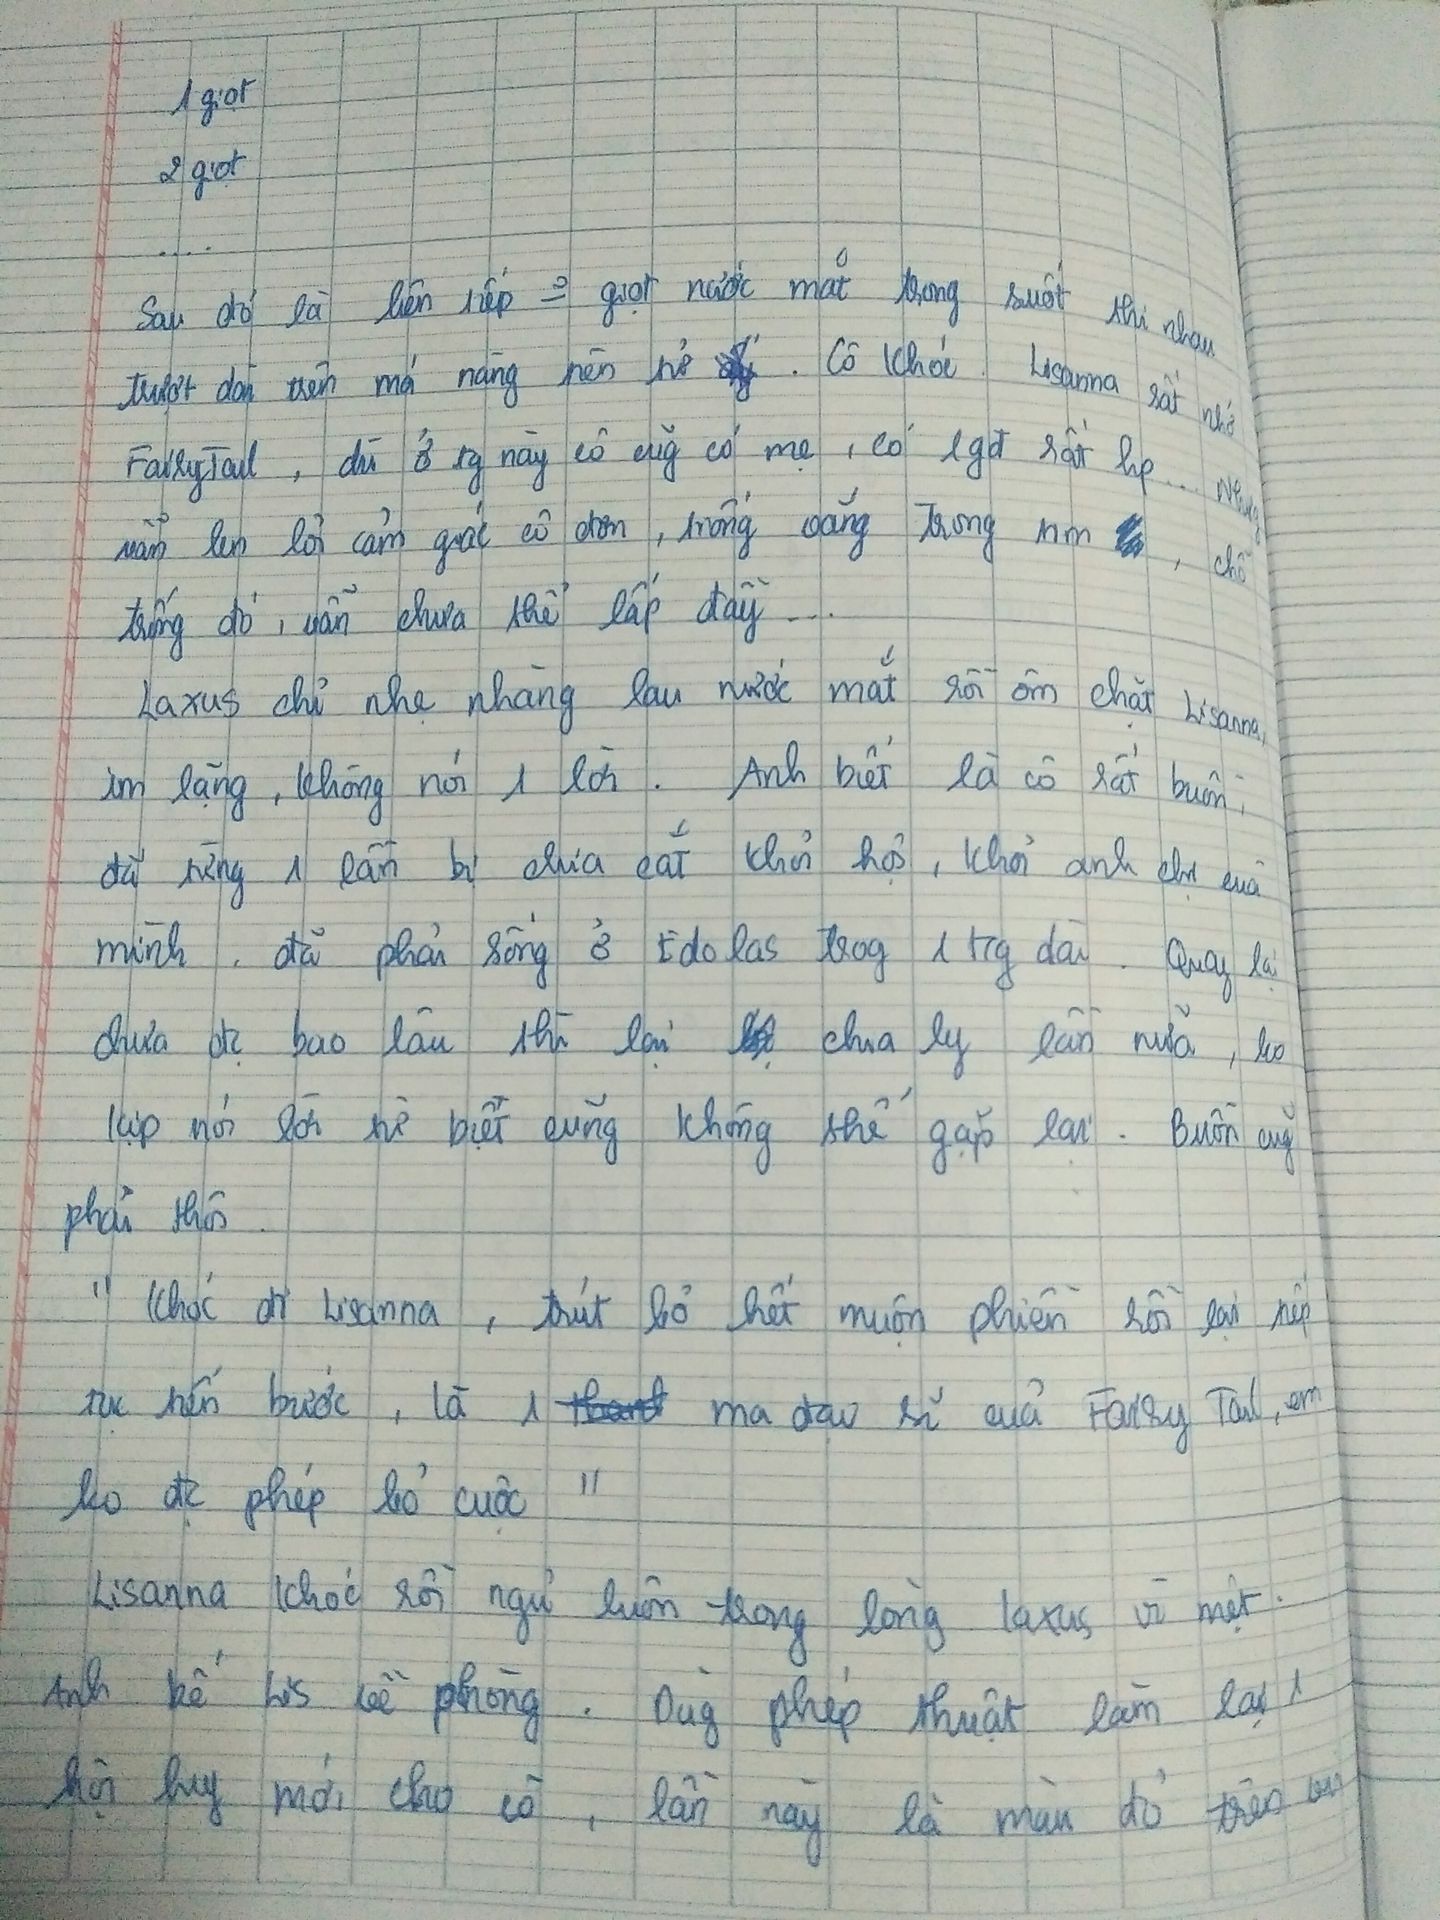 1 giọt
2 giọt
....
Sau đó là liên tiếp = giọt nước mắt trong suốt thi nhau
trượt dài trên má nàng tiên nhỏ. Cô khóc. Lisanna rất nhớ
FairyTail, dù ở tg này cô cũg có mẹ, có 1gđ rất hp... Nhưng
vẫn len lỏi cảm giác cô đơn, trống vắng trong tim, chỗ
trống đó, vẫn chưa thể lấp đầy ...
Laxus chỉ nhẹ nhàng lau nước mắt rồi ôm chặt Lisanna,
im lặng, không nói 1 lời. Anh biết là cô rất buồn,
đã từng 1 lần bị chia cắt khỏi họ, khỏi anh chị của
mình. đã phải sống ở Edolas trog 1 tg dài. Quay lại
chưa đc bao lâu thì lại chia ly lần nữa, ko
kịp nói lời từ biệt cũng không thể gặp lại. Buồn cũg
phải thôi.
" Khóc đi Lisanna, trút bỏ hết muộn phiền rồi lại tiếp
tục tiến bước, là 1 ma đạo sĩ của Fairy Tail, em
ko đc phép bỏ cuộc "
Lisanna khóc rồi ngủ luôn trong lòng Laxus vì mệt.
Anh bế Lis về phòng. Dùg phép thuật làm lại 1
hội huy mới cho cô, lần này là màu đỏ trên